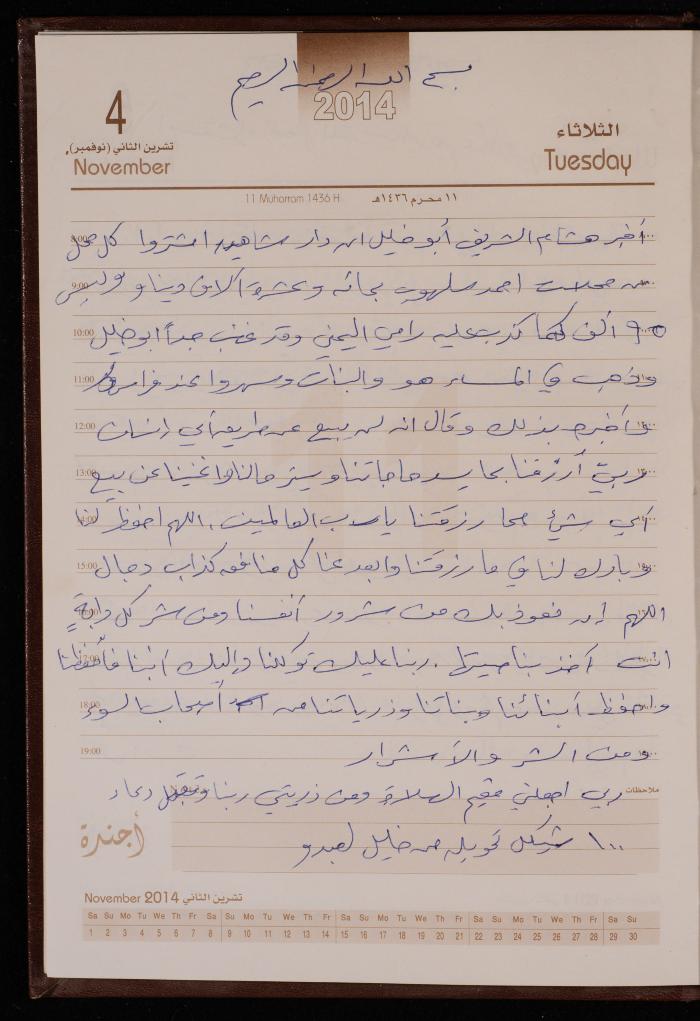 بسم الله الرحمن الرحيم
2014
4
تشرين الثاني (نوفمبر)
November
الثلاثاء
Tuesday
11 Muharram 1436 H
١١ محرم ١٤٣٦هـ
أخبر هشام الشريف أبو خليل ان دار شاهين اشتروا كل محل
8:00
من محلات احمد سلهوب بمائه وعشرة آلاف دينار وليس
9:00
٩٠ ألف كما كذب عليه رامي اليمني وقد غضب جداً ابو خليل
10:00
وذهب في المساء هو والبنات وسهروا عند فراس
11:00
وأخبره بذلك وقال انه لن يبيع عن طريق أي إنسان
12:00
ربيّ أرزقنا بما يسد حاجاتنا ويستر حالنا واغنينا عن بيع
13:00
أي شيء مما رزقتنا يا رب العالمين . اللهم احفظ لنا
14:00
وبارك لنا في ما رزقتنا وابعد عنا كل منافق كذاب دجال
15:00
اللهم إنا نعوذ بك من شرور أنفسنا ومن شر كل دابةٍ
انت آخذ بناصيتها . ربنا عليك توكلنا وإليك أنبنا فأحفظنا
17:00
واحفظ أبنائنا وبناتنا وذرياتنا من أصحاب السوء
18:00
ومن الشر والأشرار
19:00
ملاحظات
ربي اجعلني مقيم الصلاة ومن ذريتي ربنا وتقبل دعاء
١٠٠ شيكل تحويله من خليل لعبدو
أجندة
November 2014 تشرين الثاني
Sa Su Mo Tu We Th Fr Sa Su Mo Tu We Th Fr Sa Su Mo Tu We Th Fr Sa Su Mo Tu We Th Fr Sa Su
1 2 3 4 5 6 7 8 9 10 11 12 13 14 15 16 17 18 19 20 21 22 23 24 25 26 27 28 29 30